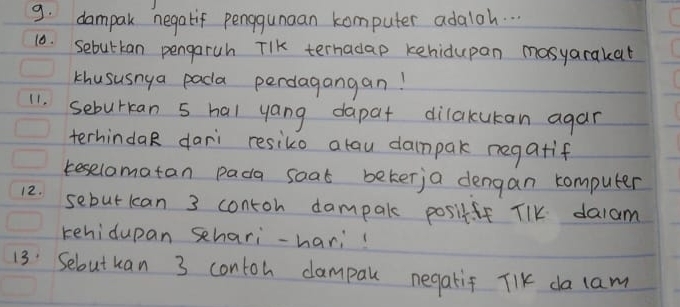 9. dampak negatif penggunaan komputer adalah...
10. Sebutkan pengaruh TIK terhadap kehidupan masyarakat
khususnya pada perdagangan!
11. Sebutkan 5 hal yang dapat dilakukan agar
terhindaR dari resiko atau dampak negatif
keselamatan pada saat bekerja dengan komputer
12. Sebutkan 3 contoh dampak positif TIK dalam
kehidupan sehari-hari!
13. Sebutkan 3 contoh dampak negatif TIK dalam